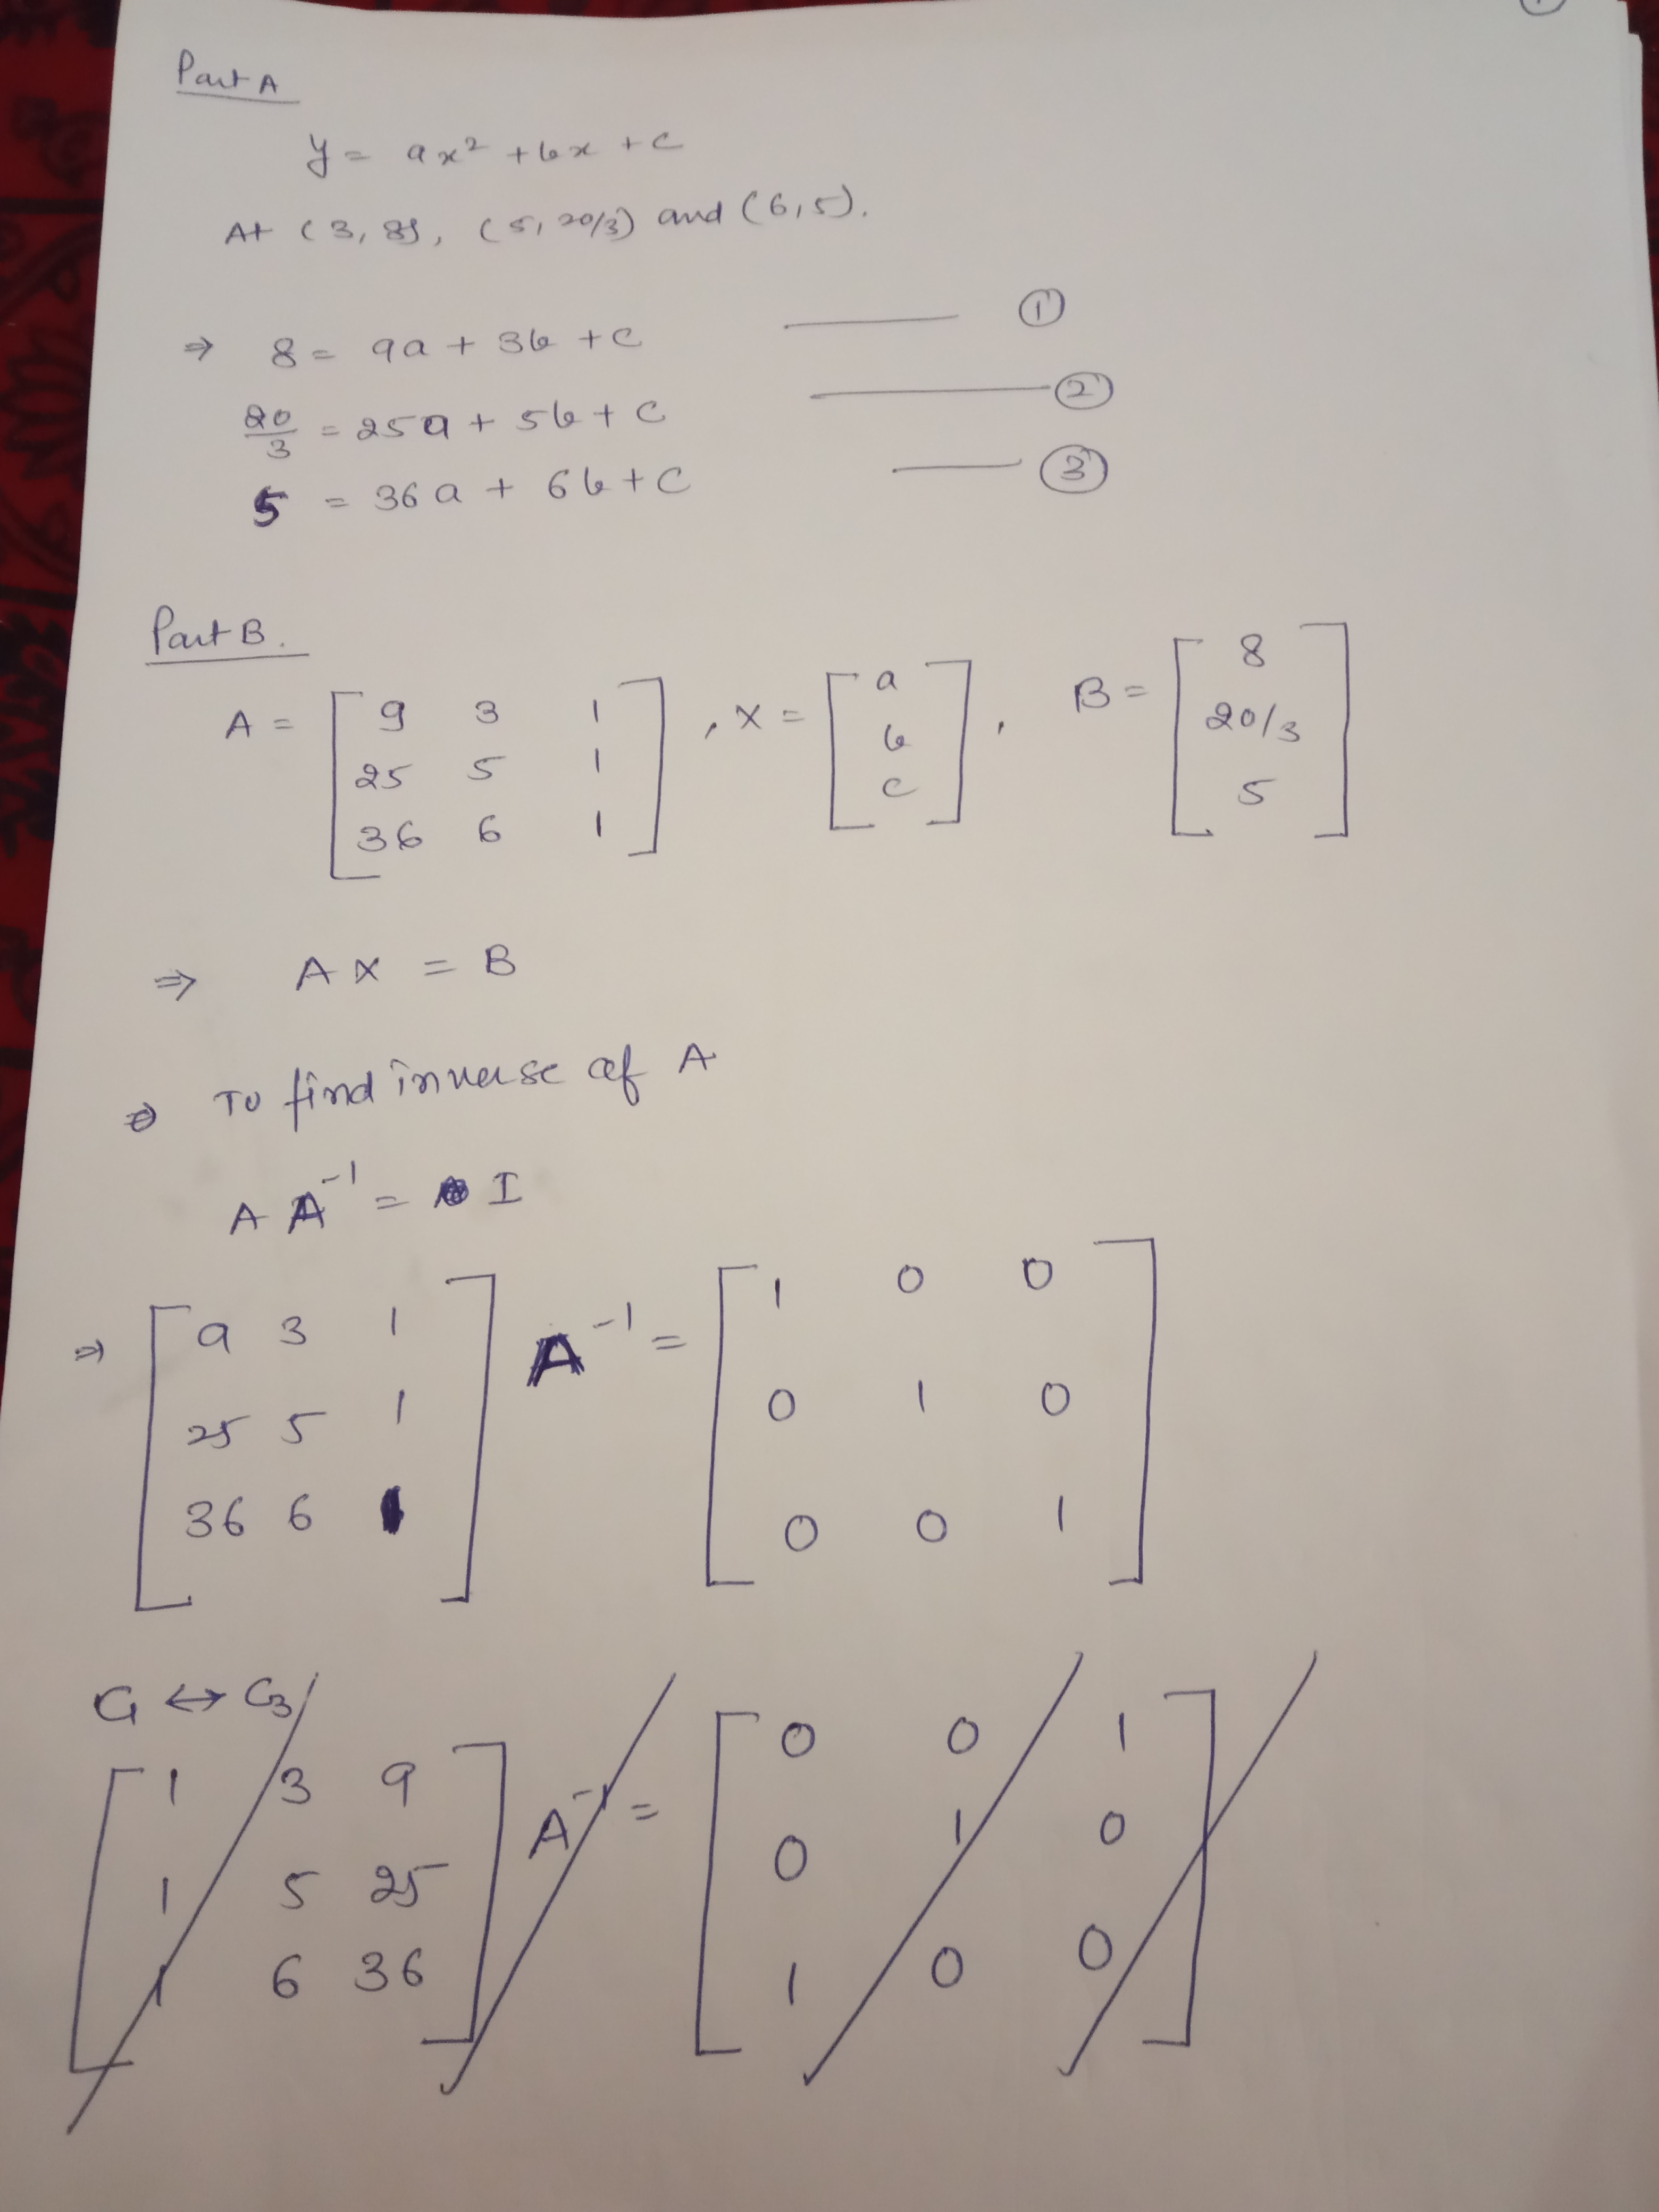 Part A
y = ax² + bx + c
At (3, 8), (5, 20/3) and (6, 5).
⇒ 8 = 9a + 3b + c ——— ①
20/3 = 25a + 5b + c ——— ②
5 = 36a + 6b + c ——— ③
Part B.
A = [ 9 3 1 ; 25 5 1 ; 36 6 1 ], X = [ a ; b ; c ], B = [ 8 ; 20/3 ; 5 ]
⇒ AX = B
⇒ To find inverse of A
A A⁻¹ = I
⇒ [ 9 3 1 ; 25 5 1 ; 36 6 1 ] A⁻¹ = [ 1 0 0 ; 0 1 0 ; 0 0 1 ]
C₁ ↔ C₃
[ 1 3 9 ; 1 5 25 ; 1 6 36 ] A⁻¹ = [ 0 0 1 ; 0 1 0 ; 1 0 0 ]